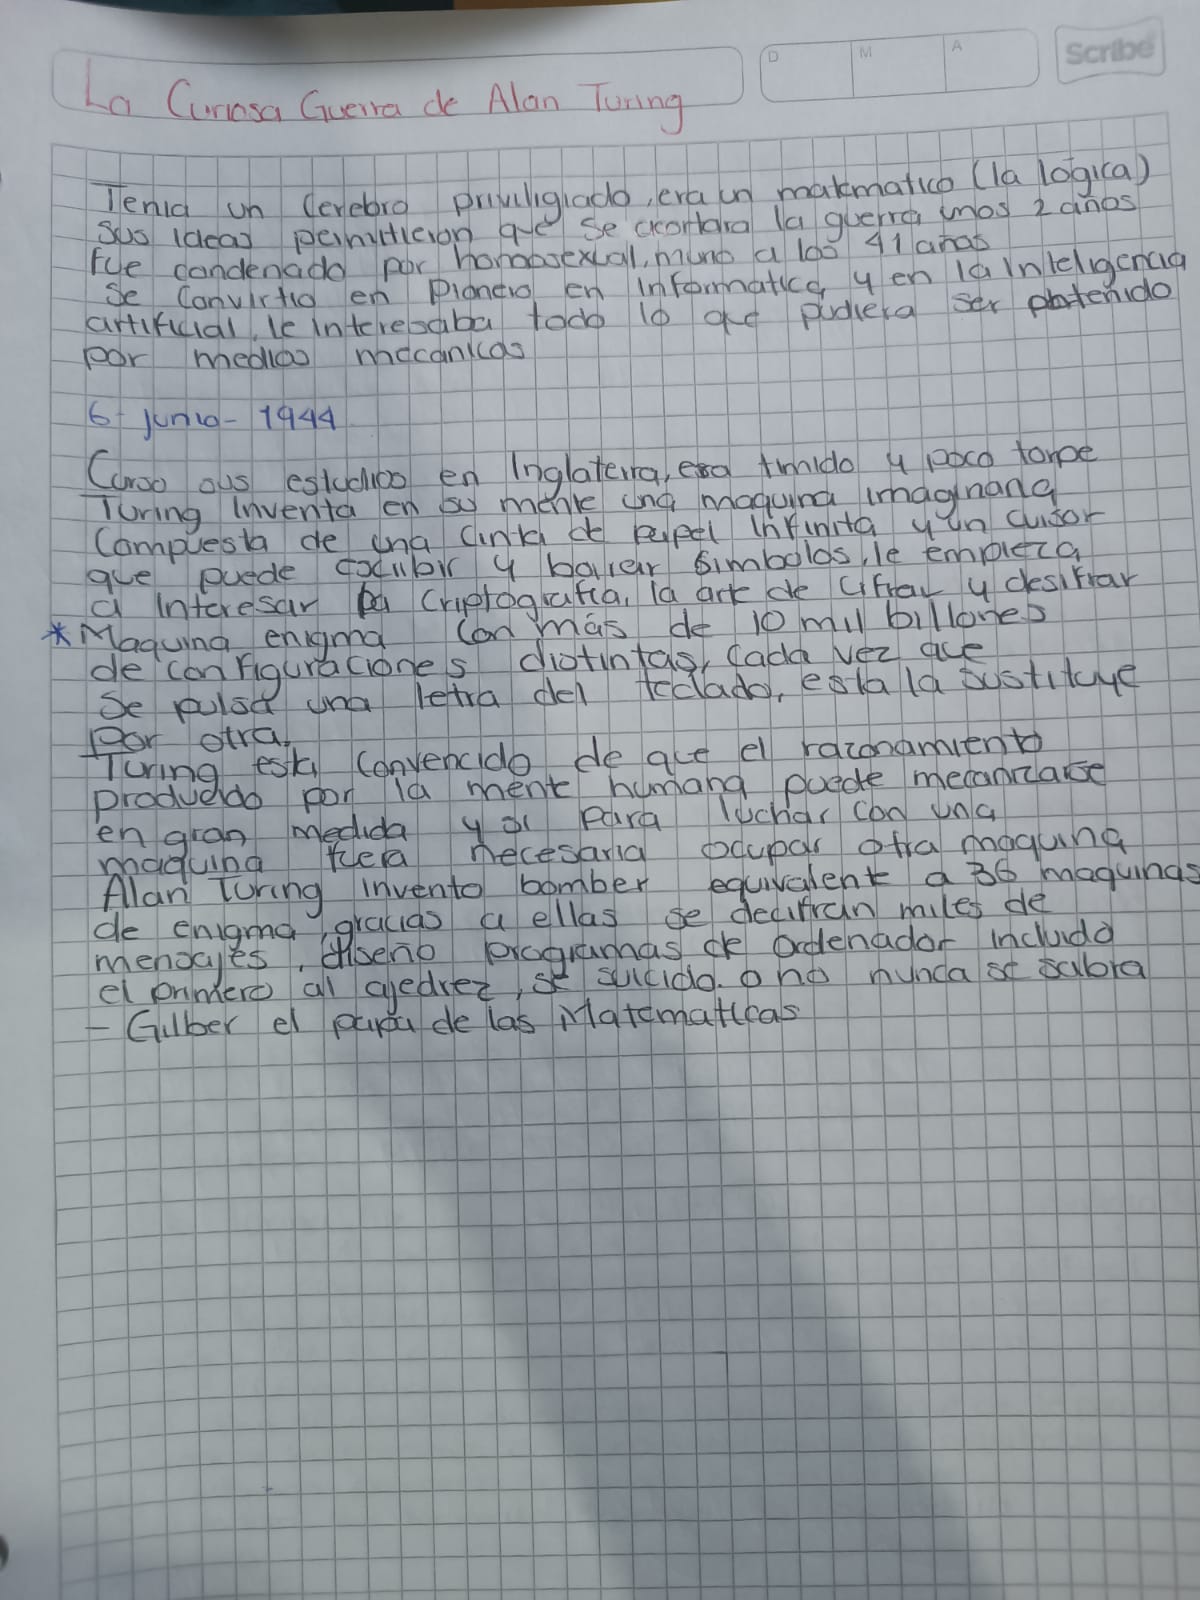 D M A
Scribe
La Curiosa Guerra de Alan Turing
Tenia un Cerebro priviligiado, era un matematico (la lógica)
sus ideas permitieron que se acortara la guerra unos 2 años
Fue condenado por homosexual, murio a los 41 años
Se Convirtio en Pionero en informatica y en la Inteligencia
artificial, le interesaba todo lo que pudiera ser obtenido
por medios mecanicos
6 - junio - 1944
Curso sus estudios en Inglaterra, era timido y poco torpe
Turing inventa en su mente una maquina imaginaria
Compuesta de una cinta de papel infinita y un cursor
que puede escribir y borrar simbolos, le empieza
a interesar la Criptografia, la arte de cifrar y desifrar
* Maquina enigma Con más de 10 mil billones
de configuraciones distintas, cada vez que
se pulsa una letra del teclado, esta la sustituye
por otra.
Turing esta Convencido de que el razonamiento
producido por la mente humana puede mecanizarse
en gran medida y si para luchar con una
maquina fuera necesaria ocupar otra maquina
Alan Turing invento bomber equivalente a 36 maquinas
de enigma, gracias a ellas se decifran miles de
mensajes, diseño programas de ordenador incluido
el primero al ajedrez, se suicido o no nunca se sabra
- Gilber el papá de las Matematicas